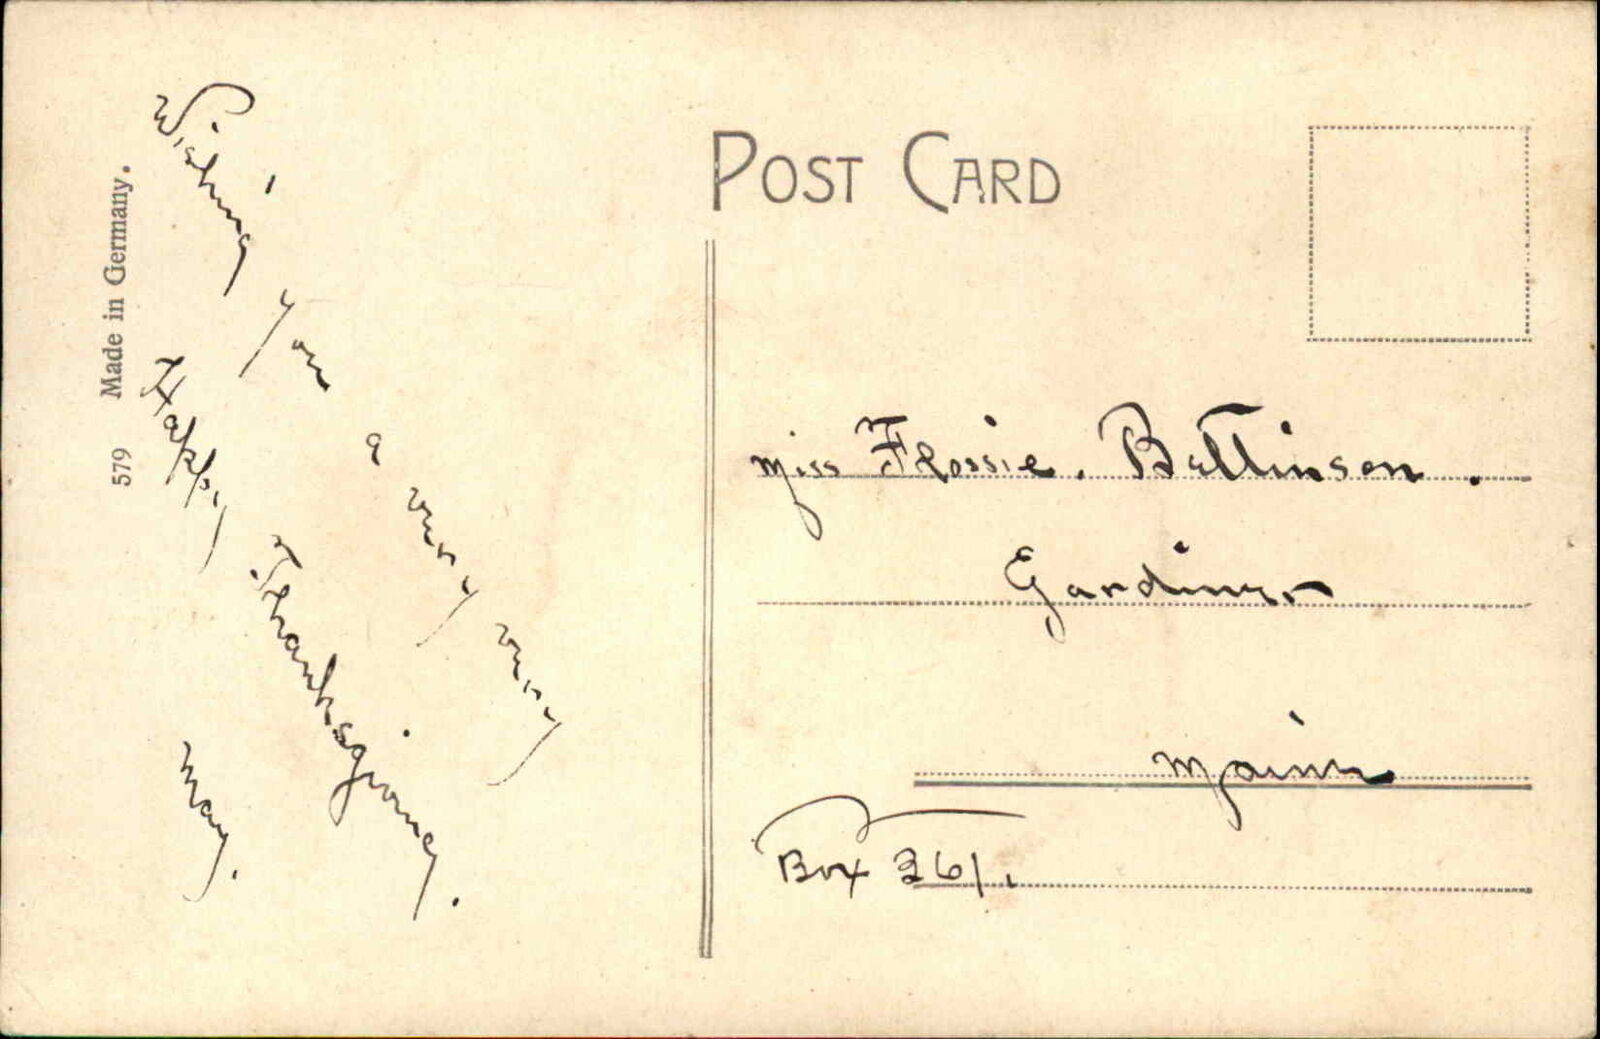 POST CARD
579 Made in Germany.
Wishing you a very very
Happy Thanksgiving.
May.
Miss Flossie. Bettinson.
Gardiner
Maine
Box 361.